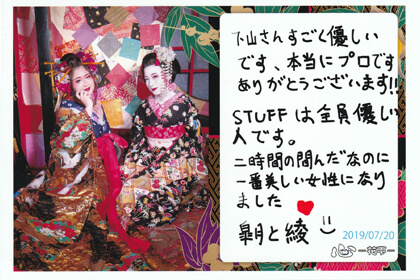 下山さんすごく優しい
です、本当にプロです
ありがとうございます!!
STUFFは全員優しい
人です。
二時間の間んだなのに
一番美しい女性になり
ました
2019/07/20